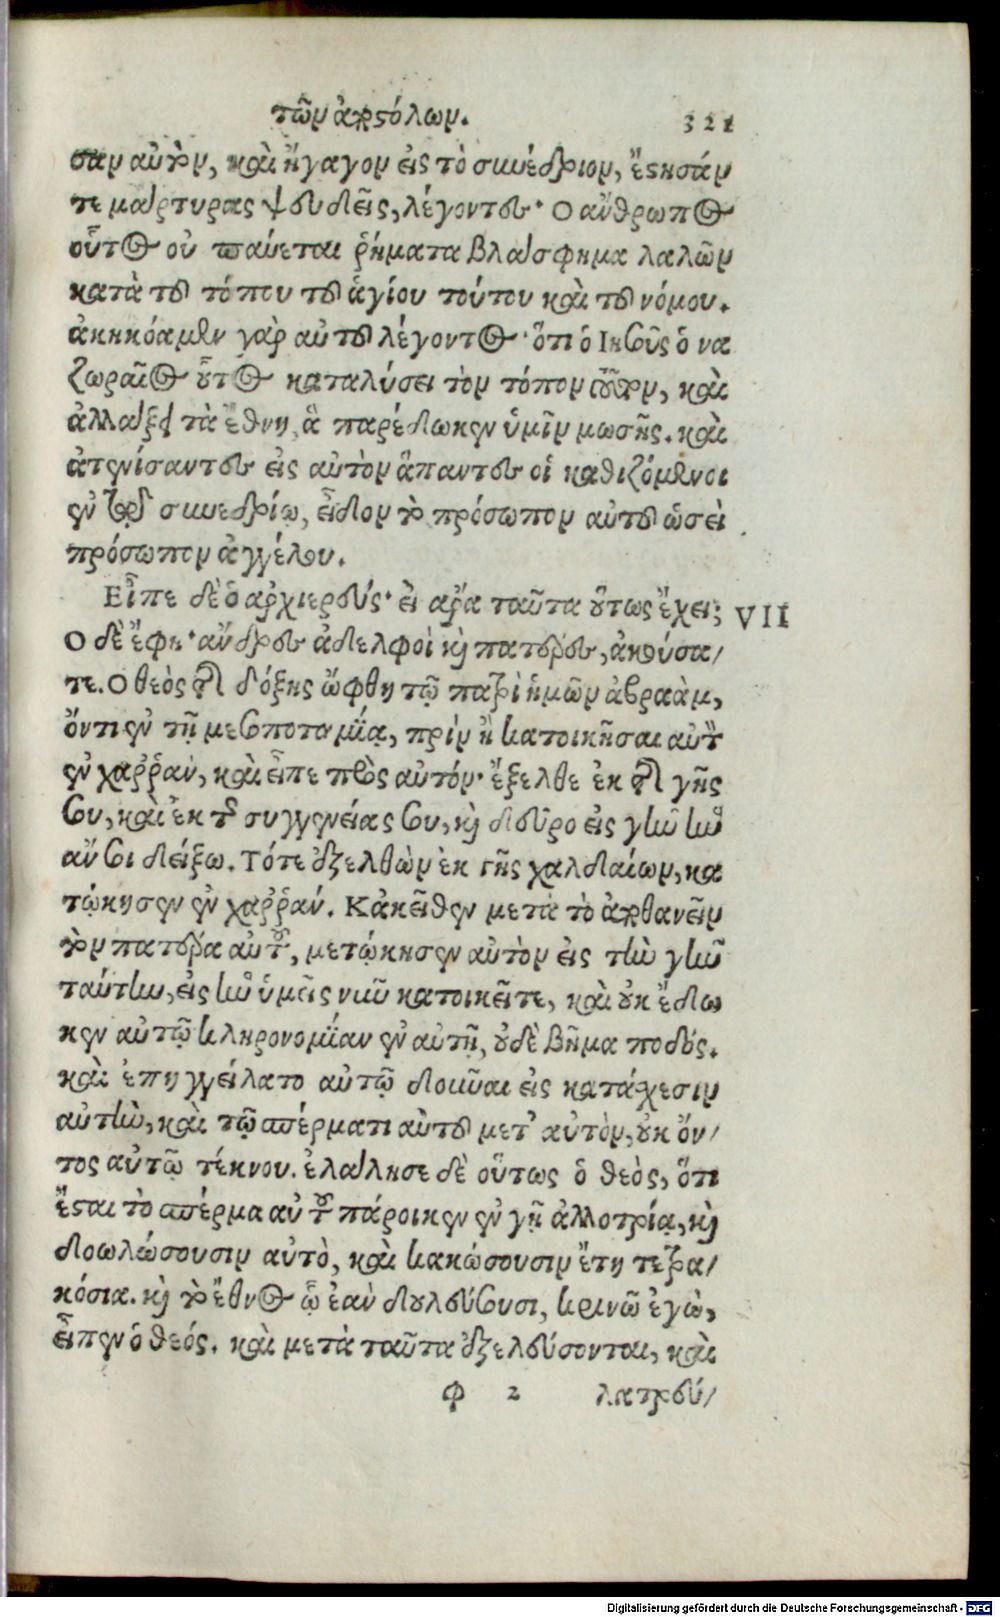 τῶν ἀποστόλων. 321
σαν αὐτὸν, καὶ ἤγαγον εἰς τὸ συνέδριον, ἔστησάν
τε μάρτυρας ψευδεῖς, λέγοντες· Ο ἄνθρωπος
οὗτος οὐ παύεται ῥήματα βλάσφημα λαλῶν
κατὰ τοῦ τόπου τοῦ ἁγίου τούτου καὶ τοῦ νόμου.
ἀκηκόαμεν γὰρ αὐτοῦ λέγοντος· ὅτι ὁ Ιησοῦς ὁ να
ζωραῖος οὗτος καταλύσει τὸν τόπον τοῦτον, καὶ
ἀλλάξει τὰ ἔθνη, ἃ παρέδωκεν ὑμῖν μωσῆς. καὶ
ἀτενίσαντες εἰς αὐτὸν ἅπαντες οἱ καθιζόμενοι
ἐν τῷ συνεδρίῳ, εἶδον τὸ πρόσωπον αὐτοῦ ὡσεὶ
πρόσωπον ἀγγέλου.
Εἶπε δὲ ὁ ἀρχιερεύς· εἰ ἄρα ταῦτα οὕτως ἔχει; VII
Ο δὲ ἔφη· ἄνδρες ἀδελφοὶ καὶ πατέρες, ἀκούσα/
τε. Ο θεὸς τῆς δόξης ὤφθη τῷ πατρὶ ἡμῶν ἀβραὰμ,
ὄντι ἐν τῇ μεσοποταμίᾳ, πρὶν ἢ κατοικῆσαι αὐτὸν
ἐν χαῤῥὰν, καὶ εἶπε πρὸς αὐτόν· ἔξελθε ἐκ τῆς γῆς
σου, καὶ ἐκ τῆς συγγενείας σου, καὶ δεῦρο εἰς γῆν ἣν
ἄν σοι δείξω. Τότε ἐξελθὼν ἐκ γῆς χαλδαίων, κα
τῴκησεν ἐν χαῤῥάν. Κἀκεῖθεν μετὰ τὸ ἀποθανεῖν
τὸν πατέρα αὐτοῦ, μετῴκησεν αὐτὸν εἰς τὴν γῆν
ταύτην, εἰς ἣν ὑμεῖς νῦν κατοικεῖτε, καὶ οὐκ ἔδω
κεν αὐτῷ κληρονομίαν ἐν αὐτῇ, οὐδὲ βῆμα ποδός.
καὶ ἐπηγγείλατο αὐτῷ δοῦναι εἰς κατάχεσιν
αὐτὴν, καὶ τῷ σπέρματι αὐτοῦ μετ' αὐτὸν, οὐκ ὄν/
τος αὐτῷ τέκνου. ἐλάλησε δὲ οὕτως ὁ θεὸς, ὅτι
ἔσται τὸ σπέρμα αὐτοῦ πάροικεν ἐν γῇ ἀλλοτρίᾳ, καὶ
δοωλώσουσιν αὐτὸ, καὶ κακώσουσιν ἔτη τετρα/
κόσια. καὶ τὸ ἔθνος ᾧ ἐὰν δουλεύσουσι, κρινῶ ἐγὼ,
εἶπεν ὁ θεός. καὶ μετὰ ταῦτα ἐξελεύσονται, καὶ
Φ 2 λατρεύ/
Digitalisierung gefördert durch die Deutsche Forschungsgemeinschaft - DFG